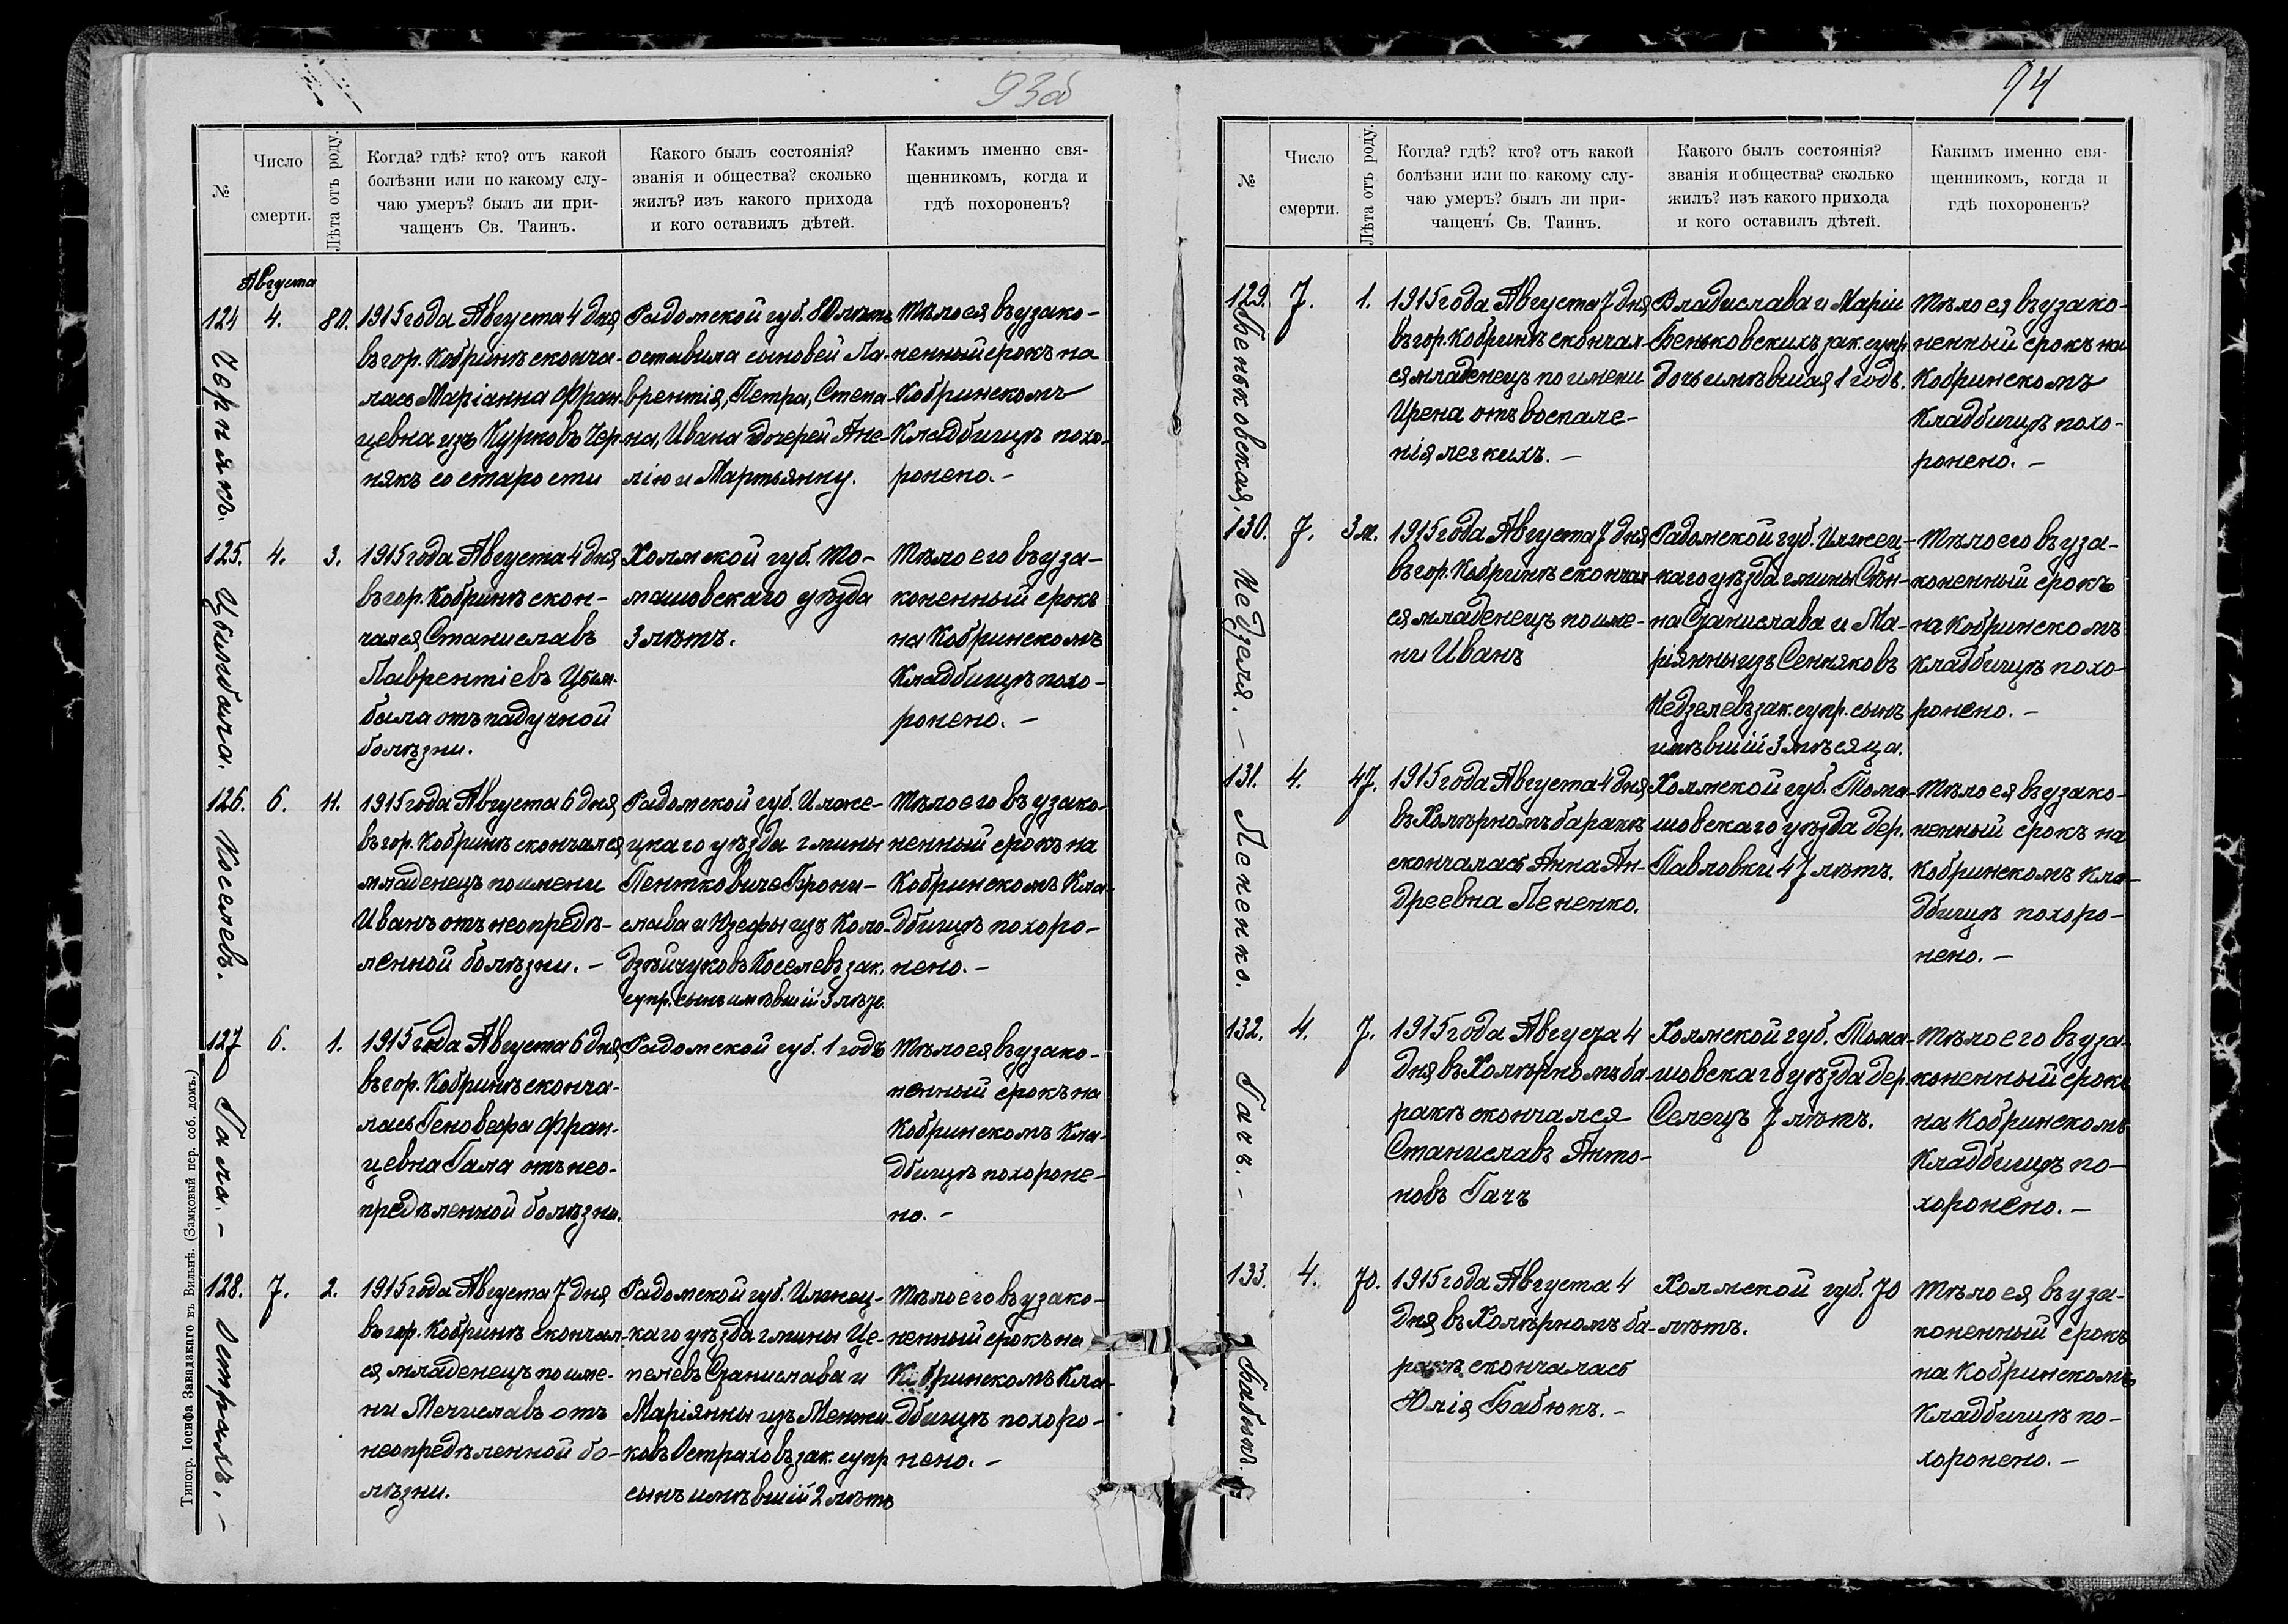 93об
№
Число смерти.
Лѣта отъ роду.
Когда? гдѣ? кто? отъ какой
болѣзни или по какому слу-
чаю умеръ? былъ ли при-
чащенъ Св. Таинъ.
Какого былъ состоянія?
званія и общества? сколько
жилъ? изъ какого прихода
и кого оставилъ дѣтей.
Какимъ именно свя-
щенникомъ, когда и
гдѣ похороненъ?
Августа
124
4.
80.
Чернякъ.
1915 года Августа 4 дня
въ гор. Кобринѣ сконча-
лась Маріанна Фран-
цевна изъ Курковъ Чер-
някъ со старости
Радомской губ. 80 лѣтъ
оставила сыновей Ла-
врентія, Петра, Степа-
на, Ивана дочерей Ане-
лію и Мартьянну.
Тѣло ея въ узако-
ненный срокъ на
Кобринскомъ
Кладбищѣ похо-
ронено. —
125.
4.
3.
Цымбала.
1915 года Августа 4 дня
въ гор. Кобринѣ скон-
чался Станиславъ
Лаврентіевъ Цым-
бала отъ падучной
болѣзни.
Холмской губ. То-
машовскаго уѣзда
3 лѣтъ.
Тѣло его въ уза-
коненный срокъ
на Кобринскомъ
Кладбищѣ похо-
ронено. —
126.
6.
11.
Коселевъ.
1915 года Августа 6 дня
въ гор. Кобринѣ скончался
младенецъ по имени
Иванъ отъ неопредѣ-
ленной болѣзни. —
Радомской губ. Илже-
цкаго уѣзда гмины
Пентковице Брони-
слава и Юзефы изъ Коло-
дзѣйчуковъ Коселевъ зак.
супр. сынъ имѣвшій
Тѣло его въ узако-
ненный срокъ на
Кобринскомъ Кла-
дбищѣ похоро-
нено. —
127
6.
1.
Гала. —
1915 года Августа 6 дня
въ гор. Кобринѣ сконча-
лась Геновефа Фран-
цевна Гала отъ нео-
предѣленной болѣзни.
Радомской губ. 1 годъ
Тѣло ея въ узако-
ненный срокъ на
Кобринскомъ Кла-
дбищѣ похороне-
но. —
128.
7.
2.
Острахъ. —
1915 года Августа 7 дня
въ гор. Кобринѣ скончал-
ся младенецъ по име-
ни Мечиславъ отъ
неопредѣленной бо-
лѣзни.
Радомской губ. Илжец-
каго уѣзда гмины Це-
пелевъ Станислава и
Маріянны изъ Менжи-
ковъ Остраховъ зак. супр
сынъ имѣвшій 2 лѣтъ
Тѣло его въ узако-
ненный срокъ на
Кобринскомъ Кла-
дбищѣ похоро-
нено. —
Типогр. Іосифа Завадзкаго въ Вильнѣ. (Замковый пер. соб. домъ.)
94
№
Число смерти.
Лѣта отъ роду.
Когда? гдѣ? кто? отъ какой
болѣзни или по какому слу-
чаю умеръ? былъ ли при-
чащенъ Св. Таинъ.
Какого былъ состоянія?
званія и общества? сколько
жилъ? изъ какого прихода
и кого оставилъ дѣтей.
Какимъ именно свя-
щенникомъ, когда и
гдѣ похороненъ?
129.
7.
1.
Беньковская,
1915 года Августа 7 дня
въ гор. Кобринѣ скончал-
ся младенецъ по имени
Ирена отъ воспале-
нія легкихъ. —
Владислава и Маріи
Беньковскихъ зак. супр.
дочь имѣвшая 1 годъ.
Тѣло ея въ узако-
ненный срокъ на
Кобринскомъ
Кладбищѣ похо-
ронено. —
130.
7.
3 м.
Недзеля. —
1915 года Августа 7 дня
въ гор. Кобринѣ скончал-
ся младенецъ по име-
ни Иванъ
Радомской губ. Илжец-
каго уѣзда гмины Сѣн-
на Станислава и Ма-
ріянны изъ Сенняковъ
Недзелевъ зак. супр. сынъ
имѣвшій 3 мѣсяца.
Тѣло его въ уза-
коненный срокъ
на Кобринскомъ
Кладбищѣ похо-
ронено. —
131.
4.
47.
Лененко.
1915 года Августа 4 дня
въ Холѣрномъ баракѣ
скончалась Анна Ан-
дреевна Лененко.
Холмской губ. Тома-
шовскаго уѣзда дер.
Павловки 47 лѣтъ.
Тѣло ея въ узако-
ненный срокъ на
Кобринскомъ Кла-
дбищѣ похоро-
нено. —
132.
4.
7.
Гачъ. —
1915 года Августа 4
дня въ Холѣрномъ ба-
ракѣ скончался
Станиславъ Анто-
новъ Гачъ
Холмской губ. Тома-
шовскаго уѣзда дер.
Селецъ 7 лѣтъ.
Тѣло его въ уза-
коненный срокъ
на Кобринскомъ
Кладбищѣ по-
хоронено. —
133.
4.
70.
Бабюкъ.
1915 года Августа 4
дня въ Холѣрномъ ба-
ракѣ скончалась
Юлія Бабюкъ. —
Холмской губ. 70
лѣтъ.
Тѣло ея въ уза-
коненный срокъ
на Кобринскомъ
Кладбищѣ по-
хоронено. —